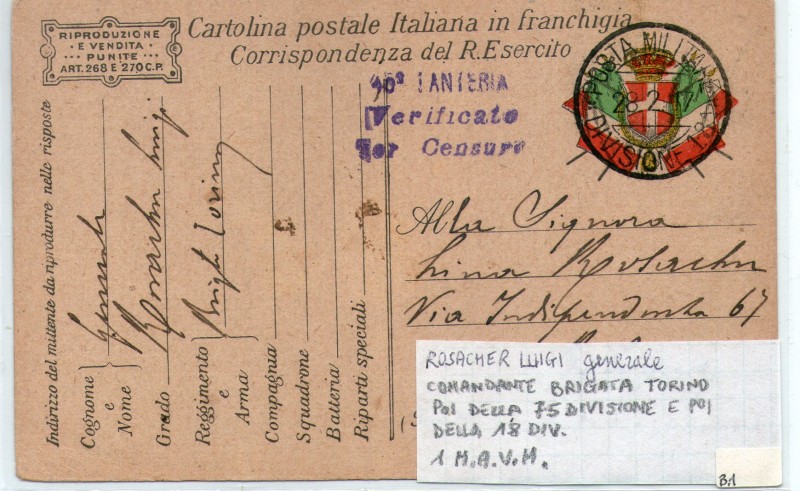 RIPRODUZIONE
E VENDITA
PUNITE
ART. 268 E 270 C.P.
Cartolina postale Italiana in franchigia
Corrispondenza del R. Esercito
Verificato
per Censura
POSTA MILITARE
28.2.17
DIVISIONE 18ª
Indirizzo del mittente da riprodurre nelle risposte
Cognome
e
Nome
Rosacher Luigi
Grado
Reggimento
e
Arma
Torino
Compagnia
Squadrone
Batteria
Riparti speciali
Alla Signora
Lina Rosacher
Via Indipendenta 67
ROSACHER LUIGI generale
COMANDANTE BRIGATA TORINO
POI DELLA 75 DIVISIONE E POI
DELLA 18 DIV.
1 M.A.V.M.
B.1